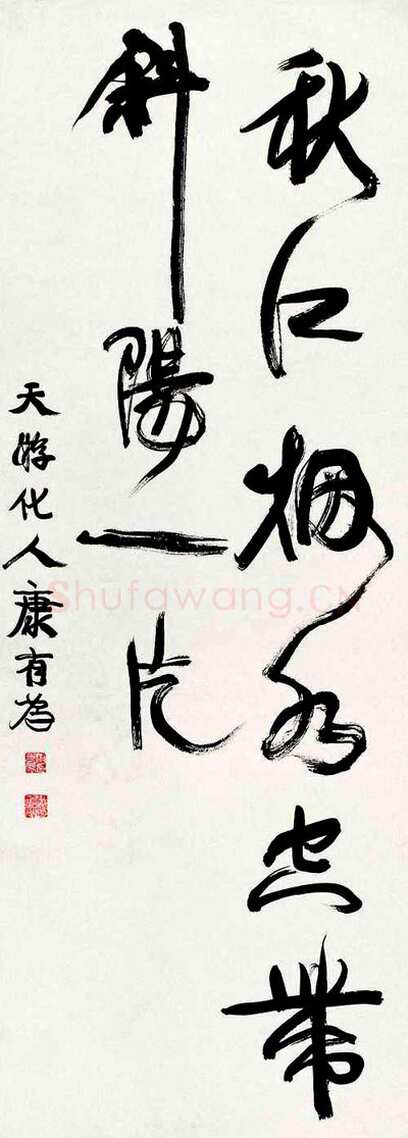 秋江烟水空帶
斜陽一片
天游化人康有為
Shufawang.CN